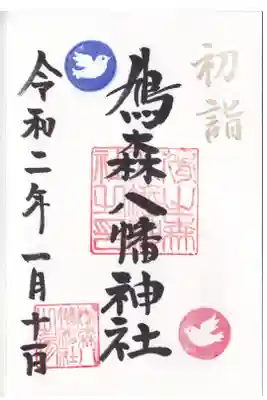 初詣
鳩森八幡神社
令和二年一月十一日